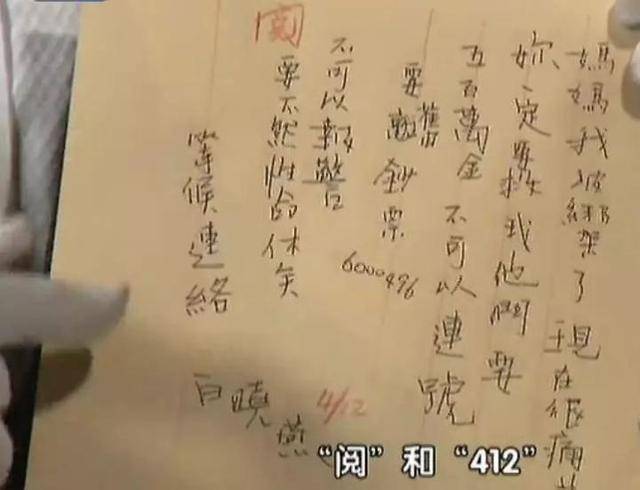 媽媽我被綁架了現在很痛苦
妳一定要救我他們要
五百萬美金不可以連號
要舊鈔票
6000496
不可以報警
要不然性命休矣
等候連絡
白曉燕
閱
4/12
“阅”和“412”